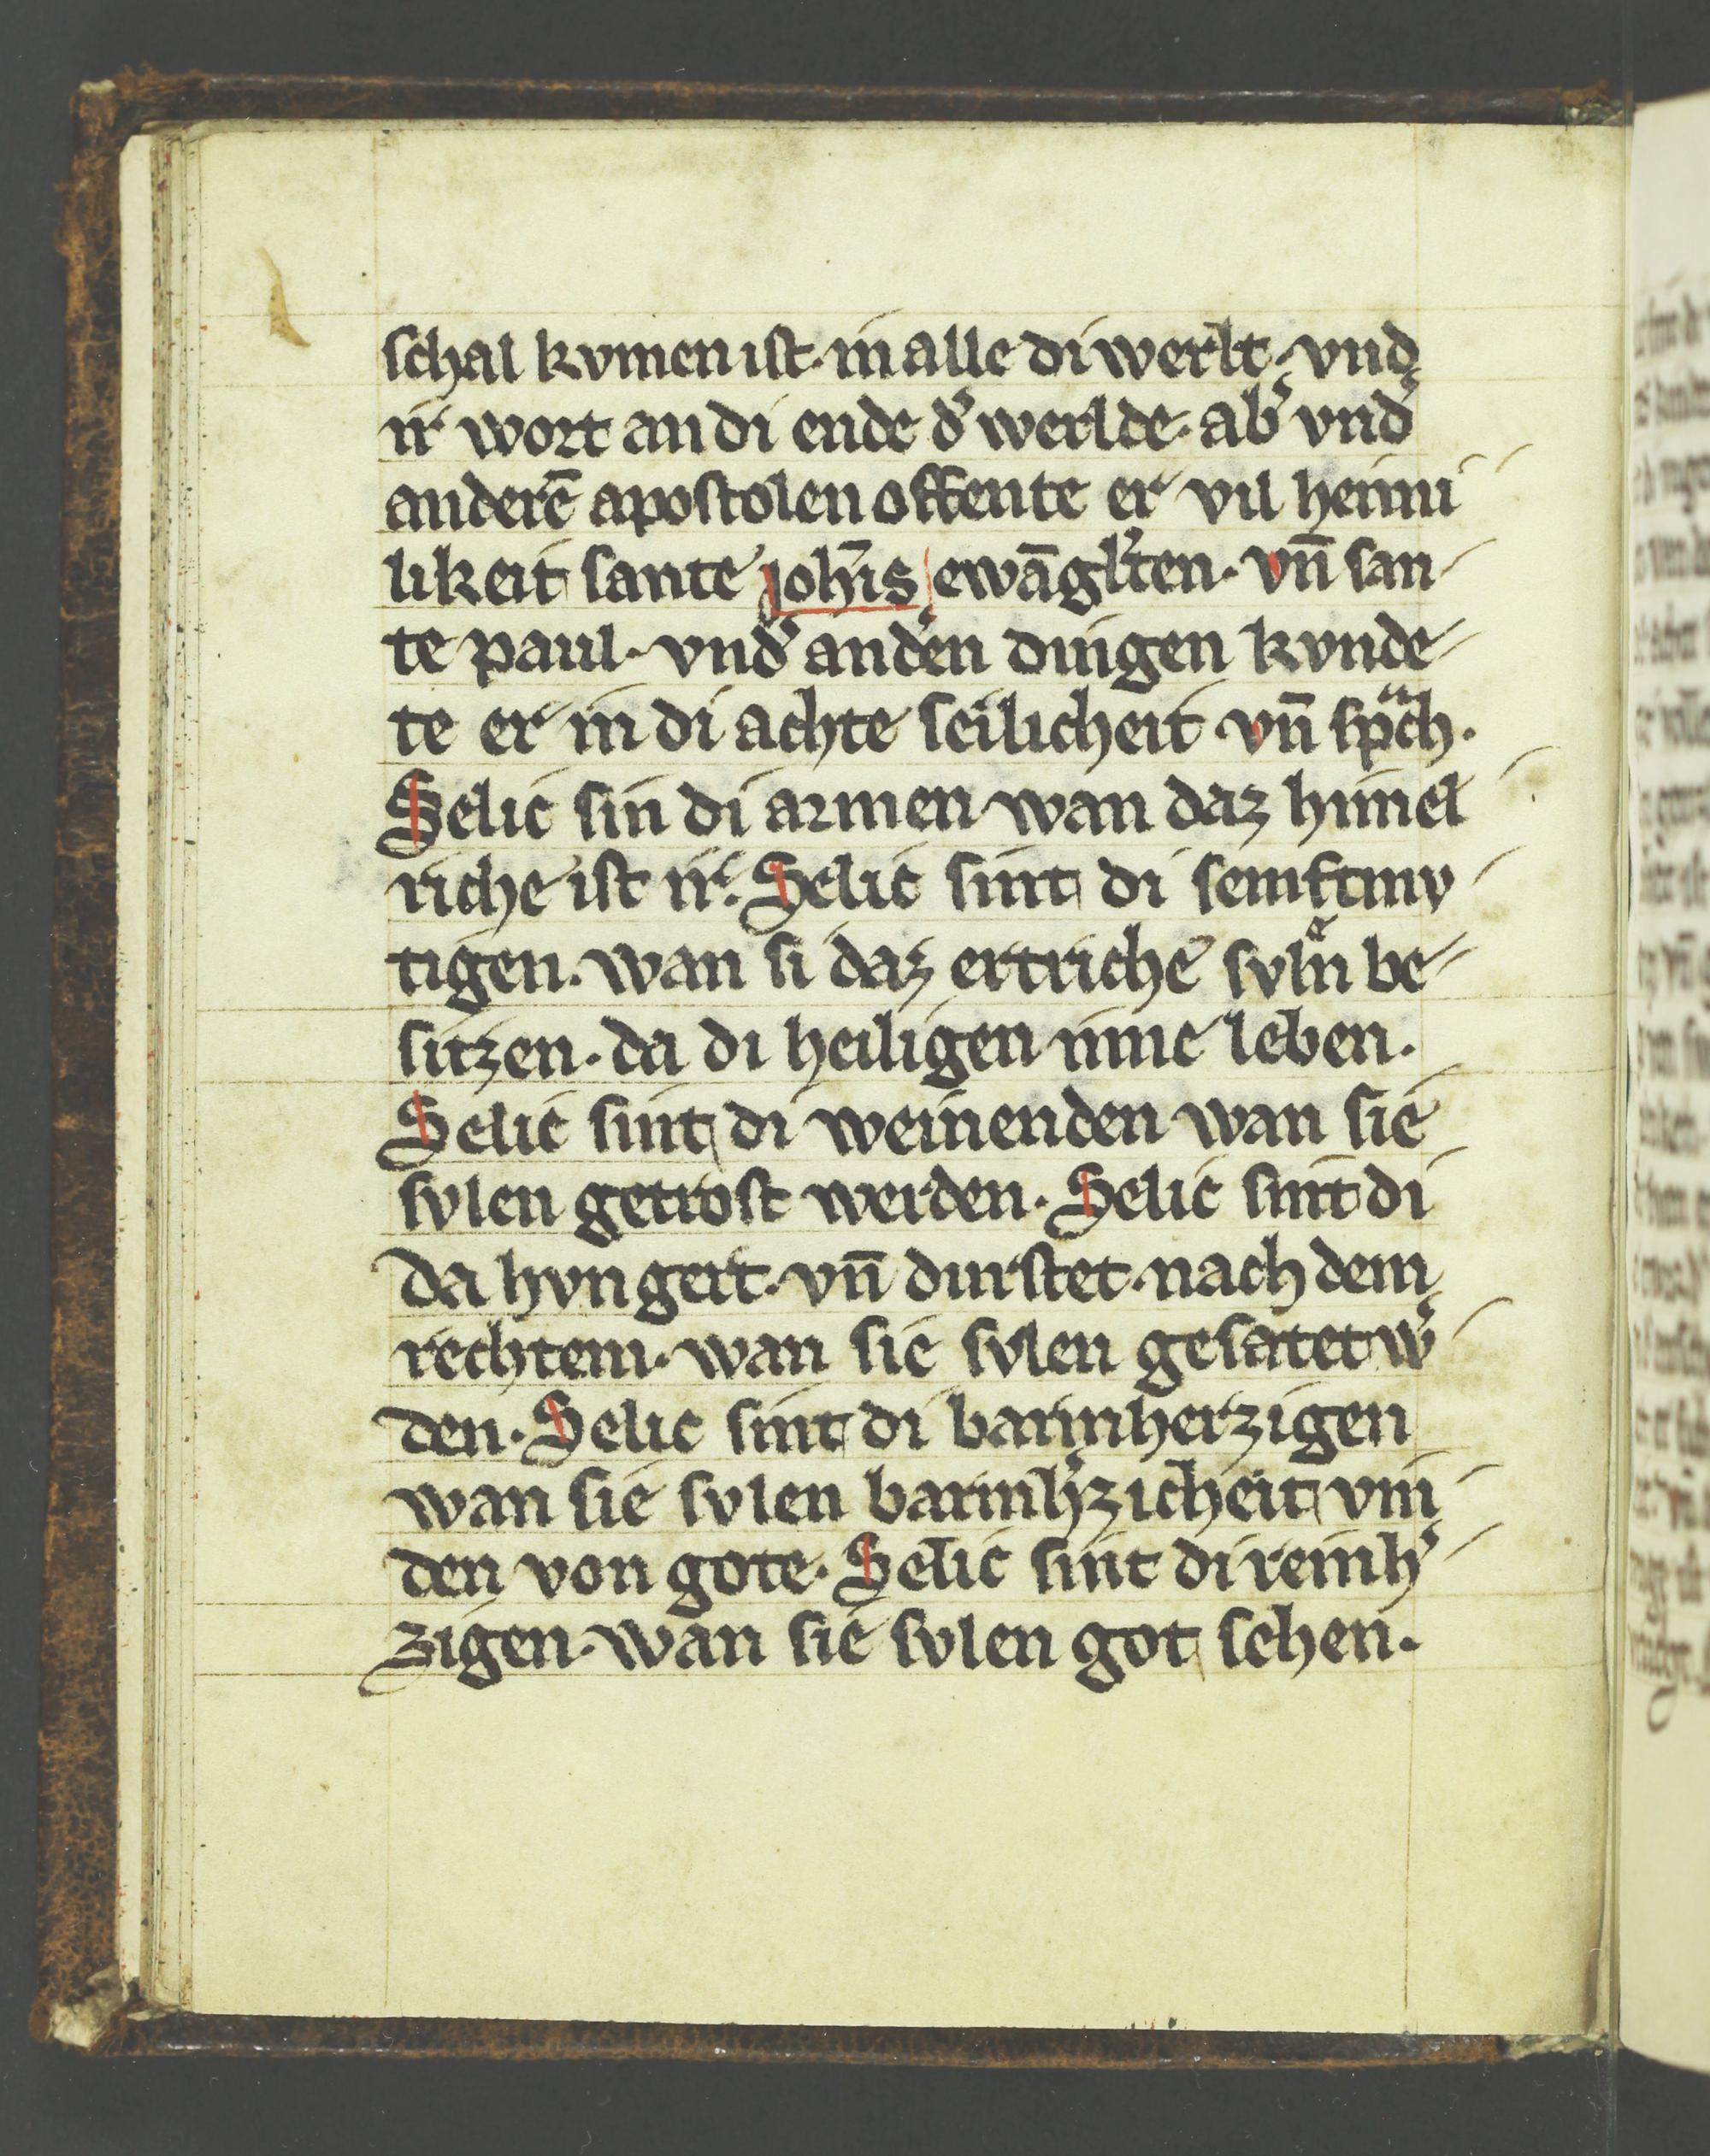 schal kvmen ist· in alle di werlt· vnd
ir wort an di ende d͛ werlde· ab͛ vnd͛
anderē apostolen offente er vil heimi
likeit sante joh̄is ewāgl͛ten· vn̄ san
te paul· vnd͛ and͛en dingen kvnde
te er in di achte seilicheit vn̄ spͣch·
Selic sin di armen wan daz himel
riche ist ir· Selic sint di semftmv
tigen· wan si daz ertriche svlͤn be
sitzen· da di heiligen inne leben·
Selic sint di weinenden wan sie
svlen getrost werden· Selic sint di
da hvngert· vn̄ durstet· nach dem
rechtem· wan sie svlen gesatet w͛
den· Selic sint di barmherzigen
wan sie svlen barmh͛zicheit vin
den von gote· Selic sint di reinh͛
zigen· wan sie svlen got sehen·